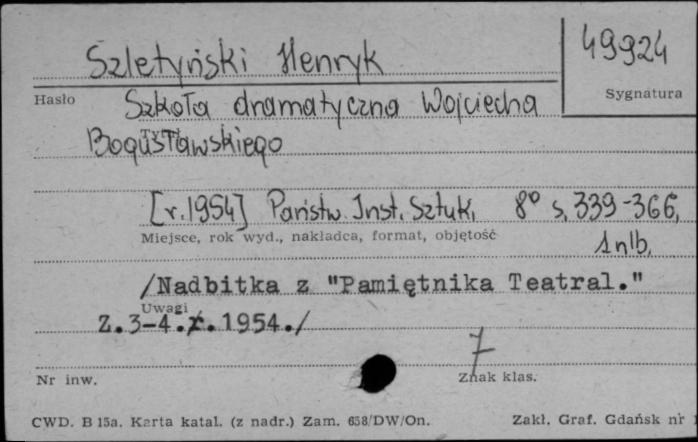 Szletyński Henryk
49924
Hasło
Sygnatura
Szkoła dramatyczna Wojciecha
Bogusławskiego
[r.1954] Państw. Inst. Sztuk, 8° s, 339-366,
Miejsce, rok wyd., nakładca, format, objętość
1 nlb.
/Nadbitka z "Pamiętnika Teatral."
Uwagi
Z.3-4.r.1954./
7
Nr inw.
Znak klas.
CWD. B 15a. Karta katal. (z nadr.) Zam. 658/DW/On.
Zakł. Graf. Gdańsk nr 1